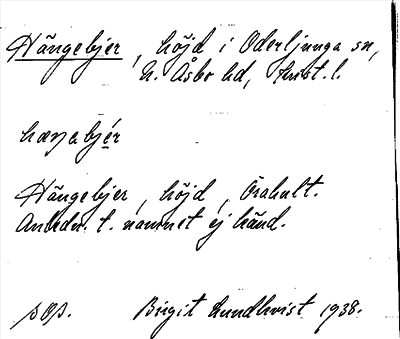 Hängebjer, höjd i Oderljunga sn,
N. Åsbo hd, Krist. l.
hæŋabjér
Hängebjer, höjd, Örahult.
Anledn. t. namnet ej känd.
pop. Birgit Lundkvist 1938.